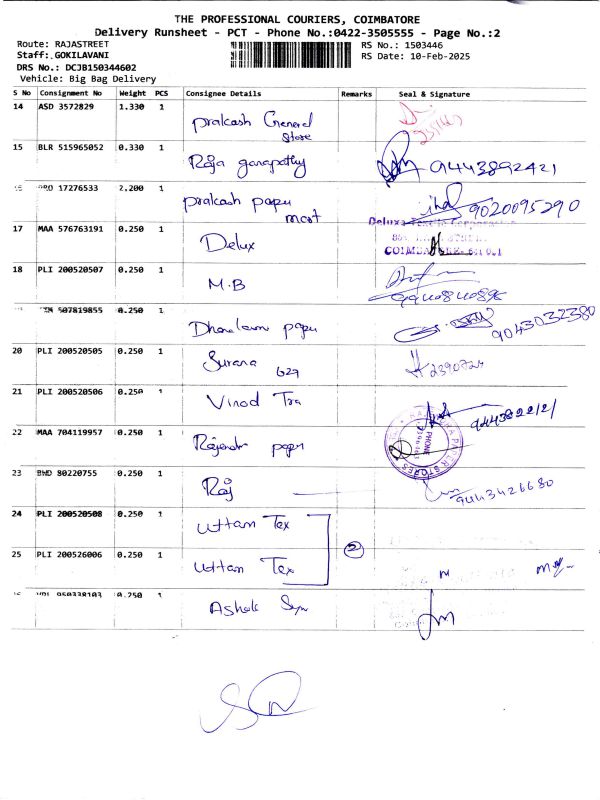 THE PROFESSIONAL COURIERS, COIMBATORE
Delivery Runsheet - PCT - Phone No.:0422-3505555 - Page No.:2
Route: RAJASTREET
RS No.: 1503446
Staff: GOKILAVANI
RS Date: 10-Feb-2025
DRS No.: DCJB150344602
Vehicle: Big Bag Delivery
S No Consignment No Weight PCS Consignee Details Remarks Seal & Signature
14 ASD 3572829 1.330 1 prakash General
Store
15 BLR 515965052 0.330 1 Raja ganapathy 9443892421
17276533 2,200 1 prakash paper
mart 9020095290
17 MAA 576763191 0.250 1 Delux Deluxe
COIMBATORE
18 PLI 200520507 0.250 1 M.B
507819855 0.250 1 paper 9043032380
20 PLI 200520505 0.250 1 Surana 629 2390724
21 PLI 200520506 0.250 1 Vinod Tra
22 MAA 704119957 0.250 1 paper PAPER STORES PHONE
23 BWD 80220755 0.250 1 Raj 9443426680
24 PLI 200520508 0.250 1 Uttam Tex
2
25 PLI 200526006 0.250 1 Uttam Tex
950338103 0.250 1 Ashok